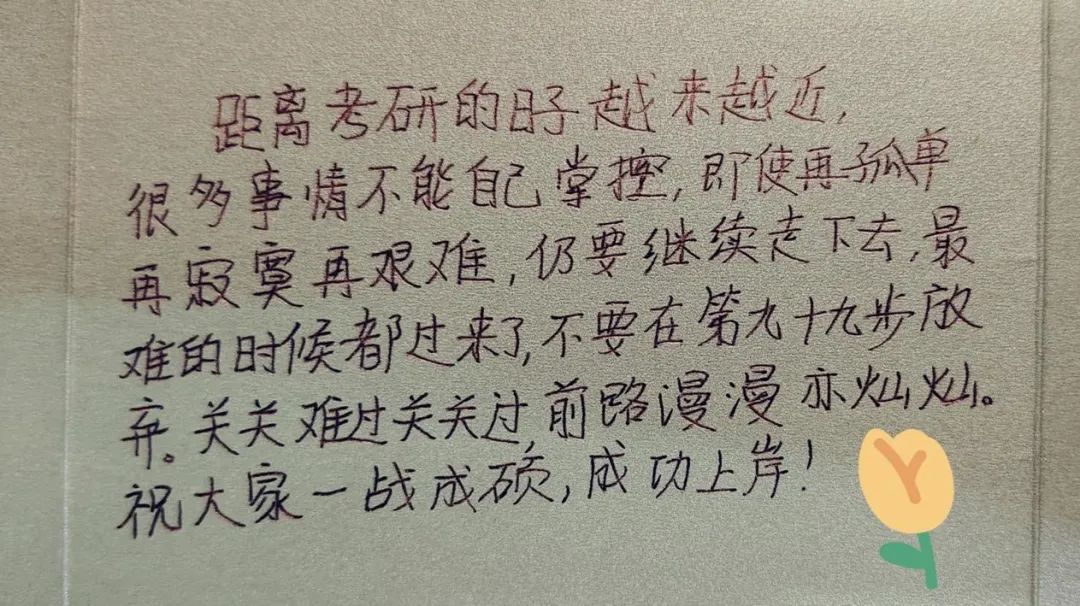 距离考研的日子越来越近，
很多事情不能自己掌控，即使再孤单
再寂寞再艰难，仍要继续走下去，最
难的时候都过来了，不要在第九十九步放
弃。关关难过关关过，前路漫漫亦灿灿。
祝大家一战成硕，成功上岸！